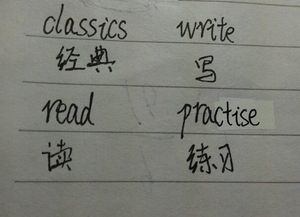 classics write
经典 写
read practise
读 练习